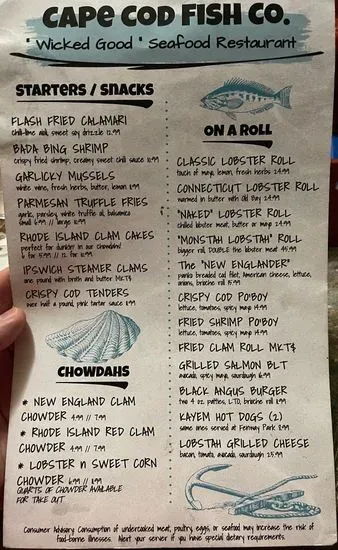 CAPE COD FISH CO.
"Wicked Good" Seafood Restaurant
STARTERS / SNACKS
FLASH FRIED CALAMARI
chili-lime aioli, sweet soy drizzle 12.99
BADA BING SHRIMP
crispy fried shrimp, creamy sweet chili sauce 10.99
GARLICKY MUSSELS
white wine, fresh herbs, butter, lemon 11.99
PARMESAN TRUFFLE FRIES
garlic, parsley, white truffle oil, balsamico
small 6.99 // large 10.99
RHODE ISLAND CLAM CAKES
perfect for dunkin' in our chowdah!
6 for 5.99 // 12 for 10.99
IPSWICH STEAMER CLAMS
one pound with broth and butter MKT$
CRISPY COD TENDERS
over half a pound, pink tarter sauce 11.99
CHOWDAHS
* NEW ENGLAND CLAM
CHOWDER 4.99 // 7.99
* RHODE ISLAND RED CLAM
CHOWDER 4.99 // 7.99
* LOBSTER n SWEET CORN
CHOWDER 6.99 // 11.99
QUARTS OF CHOWDER AVAILABLE
FOR TAKE OUT
ON A ROLL
CLASSIC LOBSTER ROLL
touch of mayo, lemon, fresh herbs 24.99
CONNECTICUT LOBSTER ROLL
warmed in butter with Old Bay 24.99
"NAKED" LOBSTER ROLL
chilled lobster meat, butter or mayo 24.99
"MONSTAH LOBSTAH" ROLL
bigger roll, DOUBLE the lobster meat 45.99
The "NEW ENGLANDER"
panko breaded cod filet, American cheese, lettuce,
onions, brioche roll 15.99
CRISPY COD PO'BOY
lettuce, tomatoes, spicy mayo 14.99
FRIED SHRIMP PO'BOY
lettuce, tomatoes, spicy mayo 14.99
FRIED CLAM ROLL MKT$
GRILLED SALMON BLT
avocado, spicy mayo, sourdough 16.99
BLACK ANGUS BURGER
two 4 oz. patties, LTO, brioche roll 11.99
KAYEM HOT DOGS (2)
same ones served at Fenway Park 9.99
LOBSTAH GRILLED CHEESE
bacon, tomato, avocado, sourdough 25.99
Consumer Advisory Consumption of undercooked meat, poultry, eggs, or seafood may increase the risk of
food-borne illnesses. Alert your server if you have special dietary requirements.